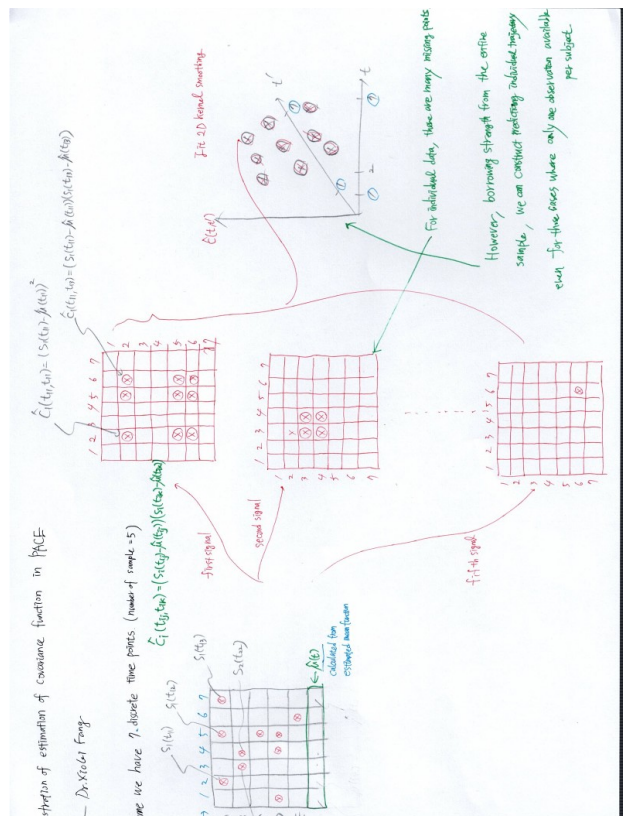 stration of estimation of covariance function in PACE
— Dr. Xiolei Fang
me we have 7-discrete time points (number of sample = 5)
Ĉi(tij, tik) = (Si(tij) - μ̂(tij))(Si(tik) - μ̂(tik))
S1(t11)
S1(t12)
S1(t13)
S2(t22)
1 2 3 4 5 6 7
← μ̂(t)
calculated from
estimated mean function
first signal
second signal
fifth signal
Ĉ1(t11, t11) = (S1(t11) - μ̂(t11))²
1 2 3 4 5 6 7
1
2
3
4
5
6
7
1 2 3 4 5 6 7
1
2
3
4
5
6
7
1 2 3 4 5 6 7
1
2
3
4
5
6
7
Fit 2D kernel smoothing
t'
t
1
2
7
1
7
For individual data, there are many missing points
However, borrowing strength from the entire
sample, we can construct predicting individual trajectory
even for those cases where only one observation available
per subject.